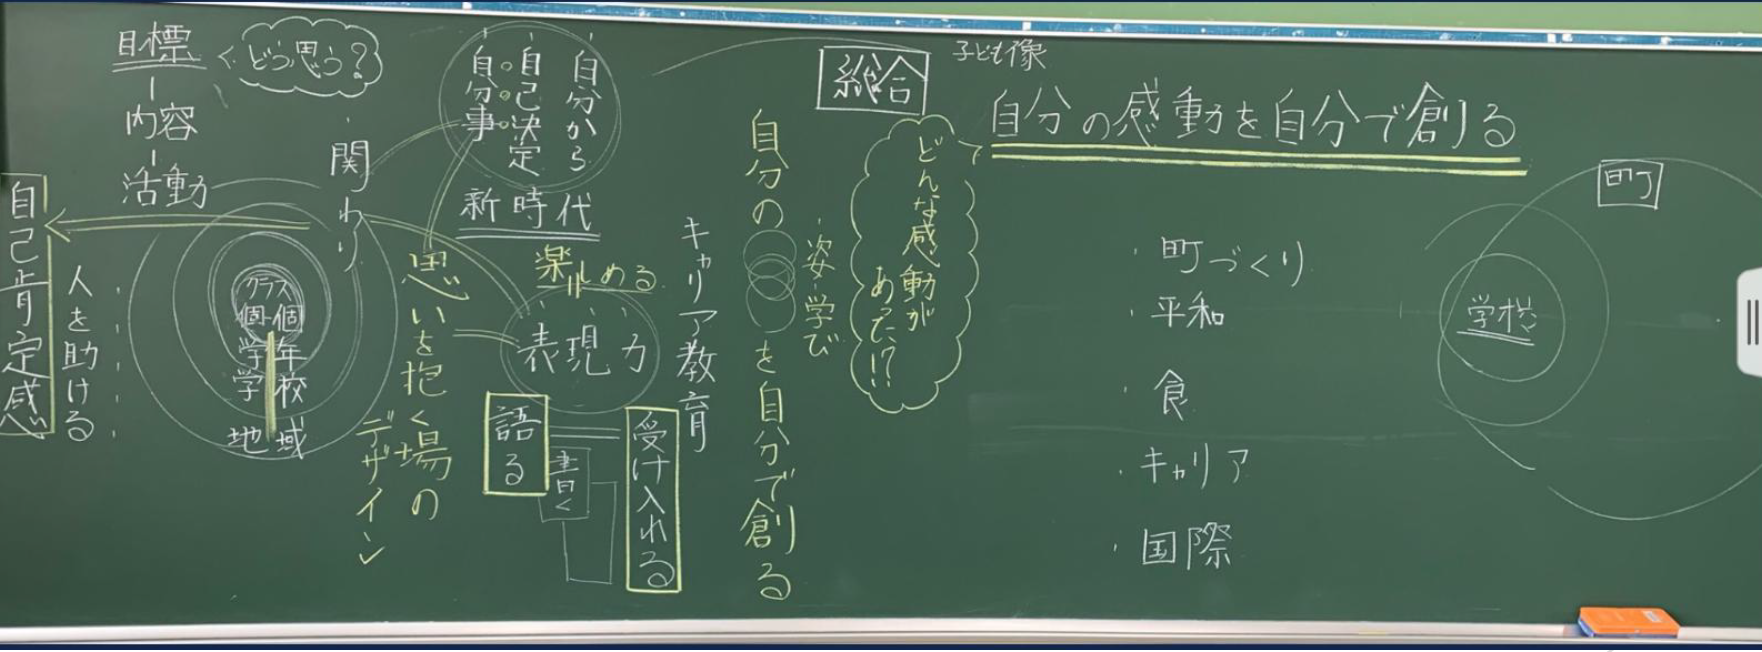 目標
どう思う?
内容
活動
自己肯定感
人を助ける
クラス
個 個
学年
学校
地域
関わり
自分から
自己決定
自分事
新時代
楽しめる
表現力
思いを抱く場の
デザイン
語る
書く
受け入れる
キャリア教育
総合
子ども像
自分の感動を自分で創る
自分の
を自分で創る
・姿・学び
どんな感動が
あった!?
・町づくり
・平和
・食
・キャリア
・国際
町
学校